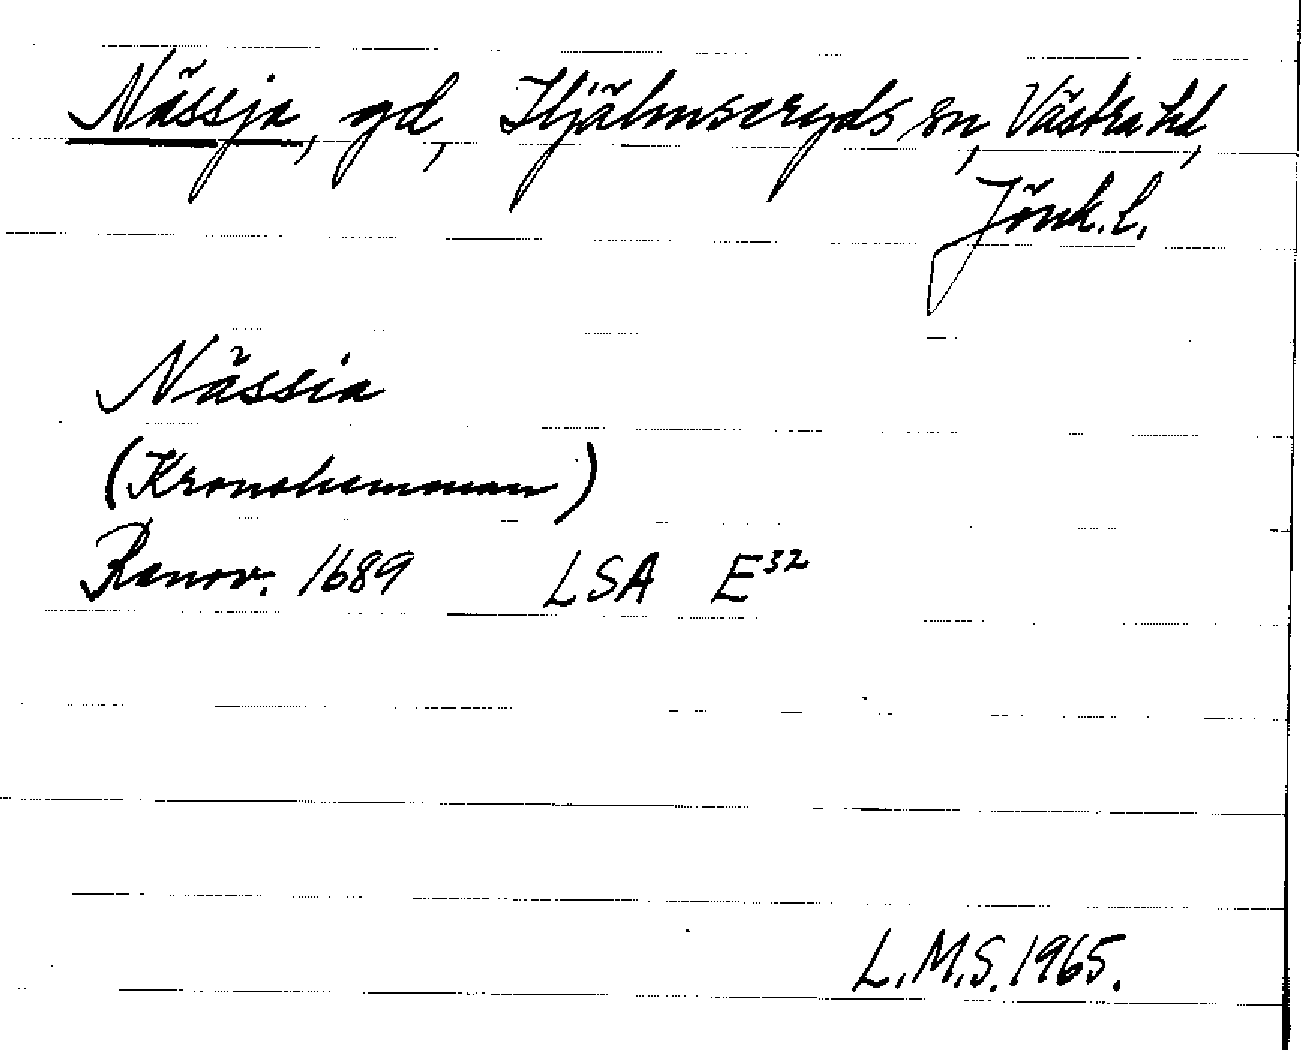 Nässja, gd, Hjälmseryds sn, Västra hd,
Jönk. l.
Nässia
(Kronohemman)
Renov. 1689 LSA E³²
L.M.S. 1965.